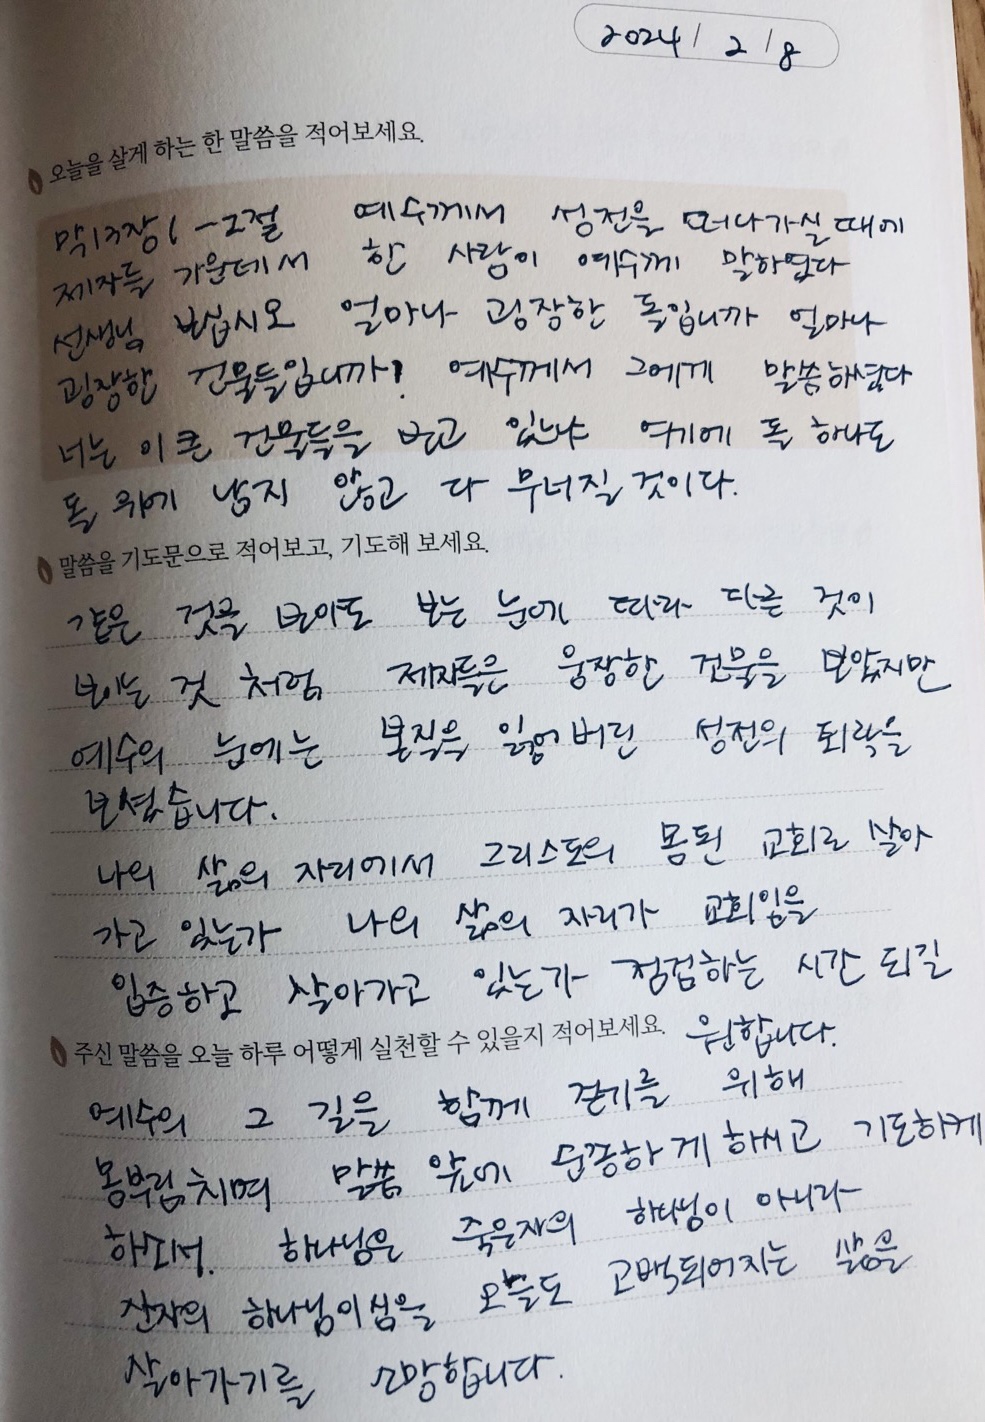 2024/2/8
오늘을 살게 하는 한 말씀을 적어보세요.
막13장1-2절 예수께서 성전을 떠나가실 때에
제자들 가운데서 한 사람이 예수께 말하였다
선생님 보십시오 얼마나 굉장한 돌입니까 얼마나
굉장한 건물들입니까? 예수께서 그에게 말씀하셨다
너는 이 큰 건물들을 보고 있느냐 여기에 돌 하나도
돌 위에 남지 않고 다 무너질 것이다.
말씀을 기도문으로 적어보고, 기도해 보세요.
같은 것을 보아도 보는 눈에 따라 다른 것이
보이는 것 처럼 제자들은 웅장한 건물을 보았지만
예수의 눈에는 본직을 잃어버린 성전의 퇴락을
보셨습니다.
나의 삶의 자리에서 그리스도의 몸된 교회로 살아
가고 있는가 나의 삶의 자리가 교회임을
입증하고 살아가고 있는가 점검하는 시간 되길
원합니다.
주신 말씀을 오늘 하루 어떻게 실천할 수 있을지 적어보세요.
예수의 그 길을 함께 걷기를 위해
몽부림치며 말씀 앞에 순종하게 하시고 기도하게
하소서. 하나님은 죽은자의 하나님이 아니라
산자의 하나님이심을 오늘도 고백되어지는 삶을
살아가기를 소망합니다.